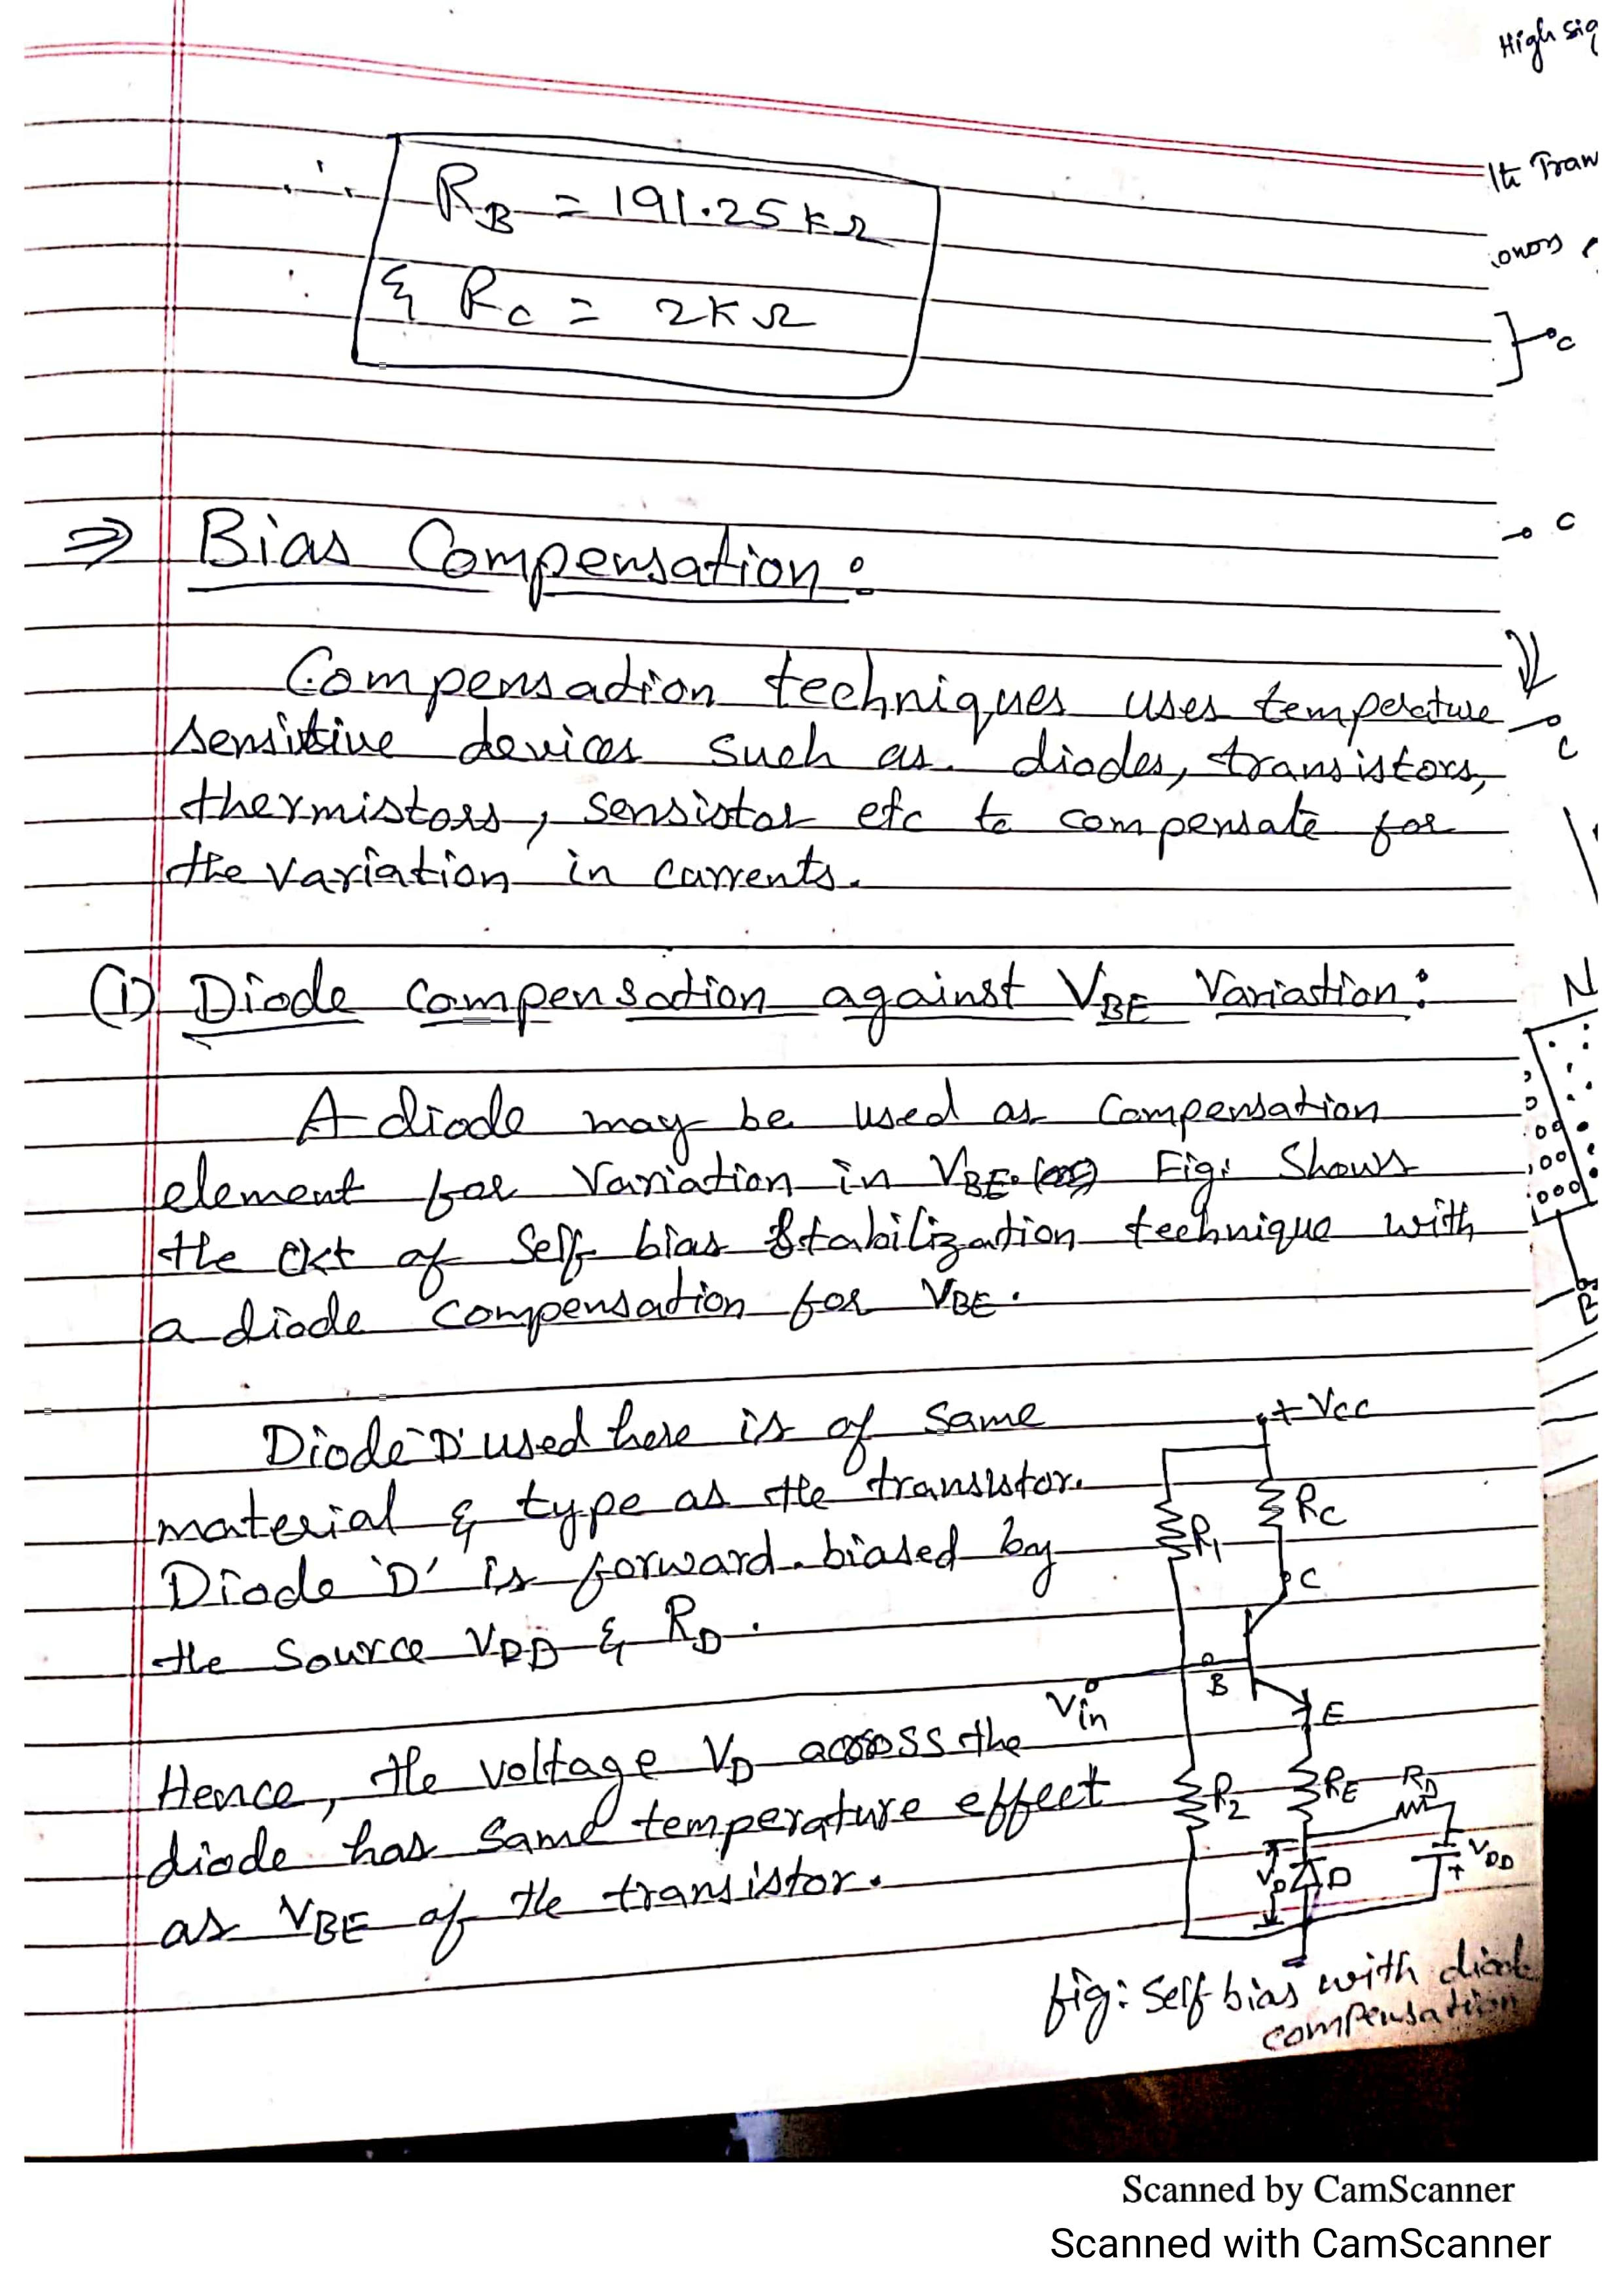 High sig
∴ R_B = 191.25 kΩ
& R_C = 2 kΩ
⇒ Bias Compensation:
Compensation techniques uses temperature
sensitive devices such as diodes, transistors,
thermistors, sensistor etc to compensate for
the variation in currents.
(1) Diode compensation against V_BE Variation:
A diode may be used as compensation
element for variation in V_BE. Fig. Shows
the ckt of self bias stabilization technique with
a diode compensation for V_BE.
Diode 'D' used here is of same
material & type as the transistor.
Diode 'D' is forward biased by
the source V_DD & R_D.
Hence, the voltage V_D across the
diode has same temperature effect
as V_BE of the transistor.
+Vcc
R1
Rc
C
Vin
B
E
R2
RE
RD
VD
D
VDD
+
fig: self bias with diode
compensation
C
C
C
N
B
Scanned by CamScanner
Scanned with CamScanner